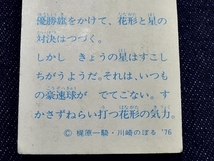 優勝旗をかけて、花形と星の
対決はつづく。
しかし きょうの星はすこし
ちがうようだ。それは、いつも
の豪速球が でてこない。す
かさずねらい打つ花形の気力。
© 梶原一騎・川崎のぼる '76